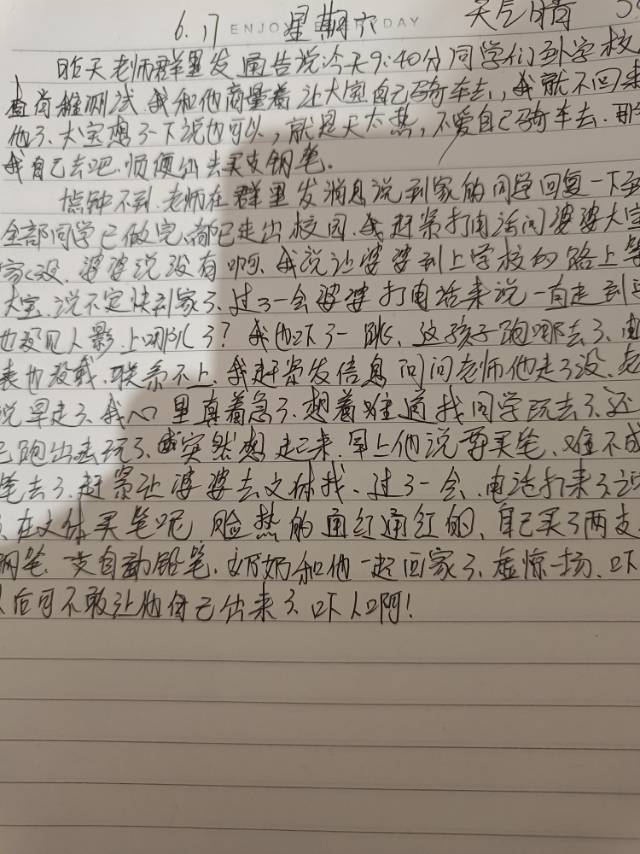 6.17 ENJOY EVERYDAY 星期六 天气晴 3
昨天老师群里发通告说今天9:40分同学们到学校
测试,我和他商量着让大宝自己骑车去,我就不回来
他了.大宝想了下说也可以,就是天太热,不爱自己骑车去.那
我自己去吧.顺便去买支钢笔.
点钟不到.老师在群里发消息说到家的同学回复一下
全部同学已做完.都已走出校园.我赶紧打电话问婆婆大宝
家没.婆婆说没有啊.我说让婆婆到上学校的路上等
大宝.说不定快到家了.过了一会婆婆打电话来说一直走到
也没见人影.上哪儿了?我也吓了一跳.这孩子跑哪去了.电
表也没戴.联系不上.我赶紧发信息问问老师他走了没.老
说早走了.我心里真着急了.想着难道找同学玩去了.还
己跑出去玩了.我突然想起来.早上他说要买笔.难不成
笔去了.赶紧让婆婆去文体找.过了一会.电话打来了说
在文体买笔呢.脸热的通红通红的.自己买了两支
钢笔.支自动铅笔.奶奶和他一起回家了.虚惊一场.吓
以后可不敢让他自己出来了.吓人啊!